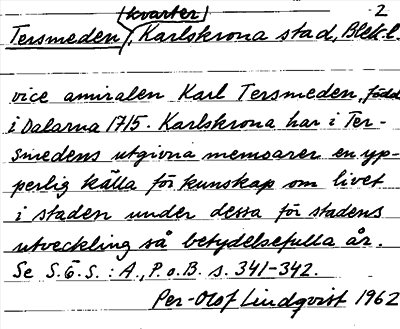 kvarter 2
Tersmeden, Karlskrona stad, Blek.l.
vice amiralen Karl Tersmeden, född
i Dalarna 1715. Karlskrona har i Ter-
smedens utgivna memoarer en yp-
perlig källa för kunskap om livet
i staden under dessa för stadens
utveckling så betydelsefulla år.
Se S.Ö.S. : A., P. o. B. s. 341-342.
Per-Olof Lindqvist 1962